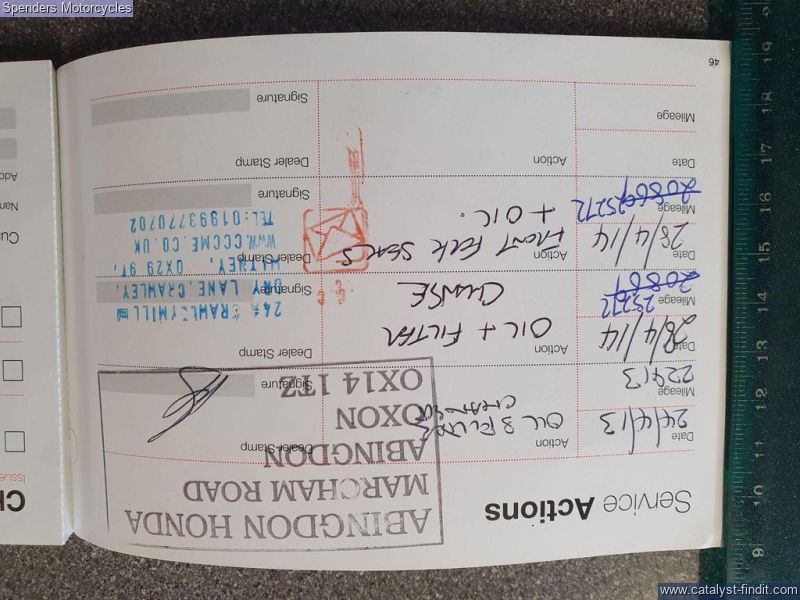 Spenders Motorcycles
Service Actions
ABINGDON HONDA
MARCHAM ROAD
ABINGDON
OXON
OX14 1TZ
Date 24/4/13
Action OIL & FILTER
CHANGE
Dealer Stamp
Mileage 22413
Signature
Date 28/4/14
Action OIL + FILTER
CHANGE
Dealer Stamp
Mileage 20869 25272
Signature
CRAWLEY MILL
DRY LANE, CRAWLEY,
WITNEY, OX29 9T,
WWW.CCCME.CO.UK
TEL:01993770702
Date 28/4/14
Action FRONT FORK SEALS
+ OIL.
Dealer Stamp
Mileage 20869 25272
Signature
Date
Action
Dealer Stamp
Mileage
Signature
46
9 10 11 12 13 14 15 16 17 18 19
www.catalyst-findit.com